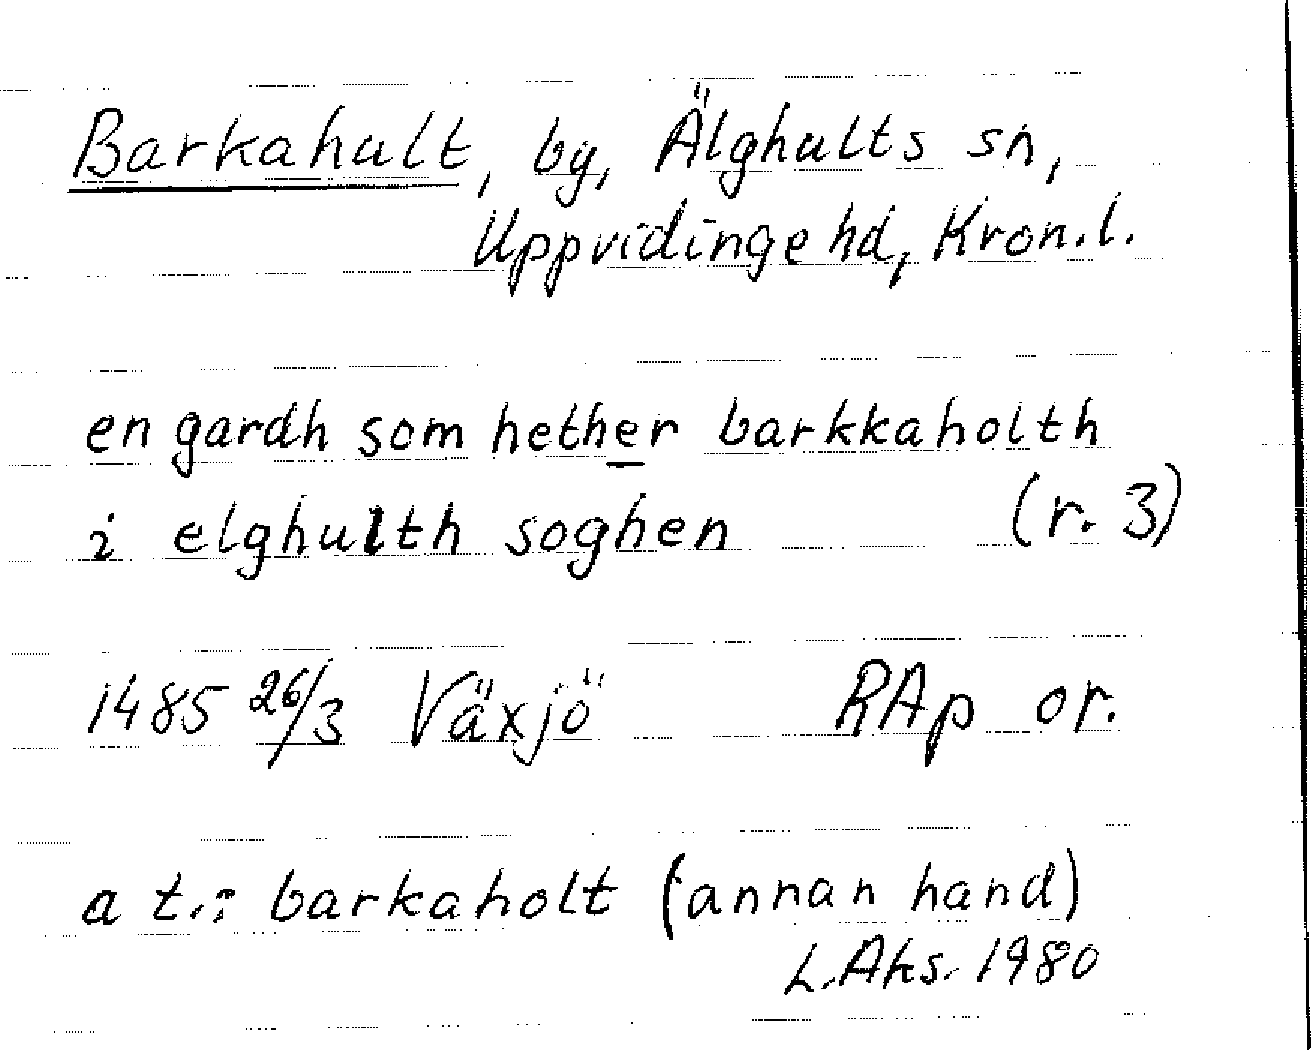 Barkahult, by, Älghults sn,
Uppvidinge hd, Kron.l.
en gardh som hether barkkaholth
i elghulth soghen (r. 3)
1485 26/3 Växjö RAp or.
a t.: barkaholt (annan hand)
L.Ahs. 1980